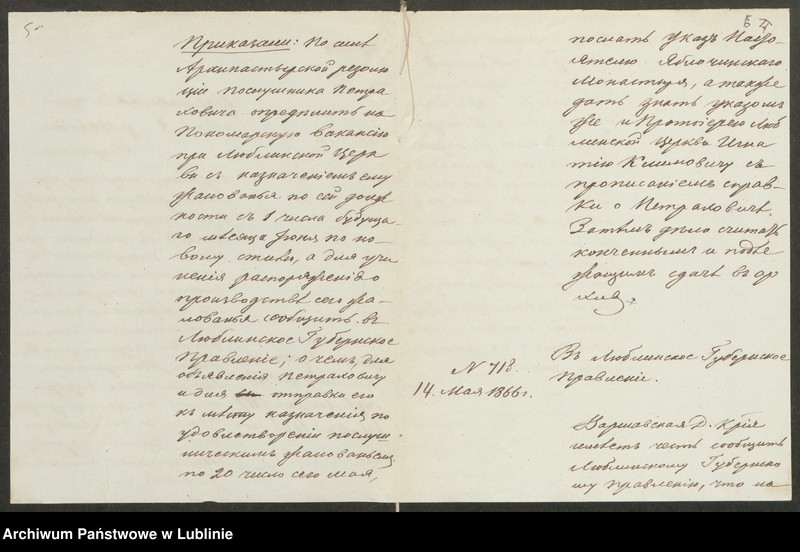 5
Приказали: По силе
Архипастырской резолю
ціи послушника Петра
ховича опредѣлить на
Пономарскую вакансію
при Люблинской Церк
ви съ назначеніемъ ему
жалованья по сей долж
ности съ 1 числа будуща-
го мѣсяца Іюня по но-
вому стилю, а для учи
ненія распоряженія о
производствѣ сего жа-
лованья сообщить въ
Люблинское Губернское
Правленіе; о чемъ, для
объявленія Петраховичу
и для отправки его
къ мѣсту назначенія, по
удовлетвореніи послуш
ническимъ жалованьемъ
по 20 число сего Мая,
послать указъ Насто-
ятелю Яблочинскаго
Монастыря, а также
дать знать указомъ
же и Протоіерею Люб
линской Церкви Игна
тію Климовичу съ
прописаніемъ справ-
ки о Петраховичѣ.
Затѣмъ дѣло считать
конченнымъ и подле
жащимъ сдачѣ въ ар
хивъ.
N 718.
14. Мая 1866 г.
Въ Люблинское Губернское
Правленіе.
Варшавская Д. К-рія
имѣетъ честь сообщить
Люблинскому Губернско
му Правленію, что на
Archiwum Państwowe w Lublinie